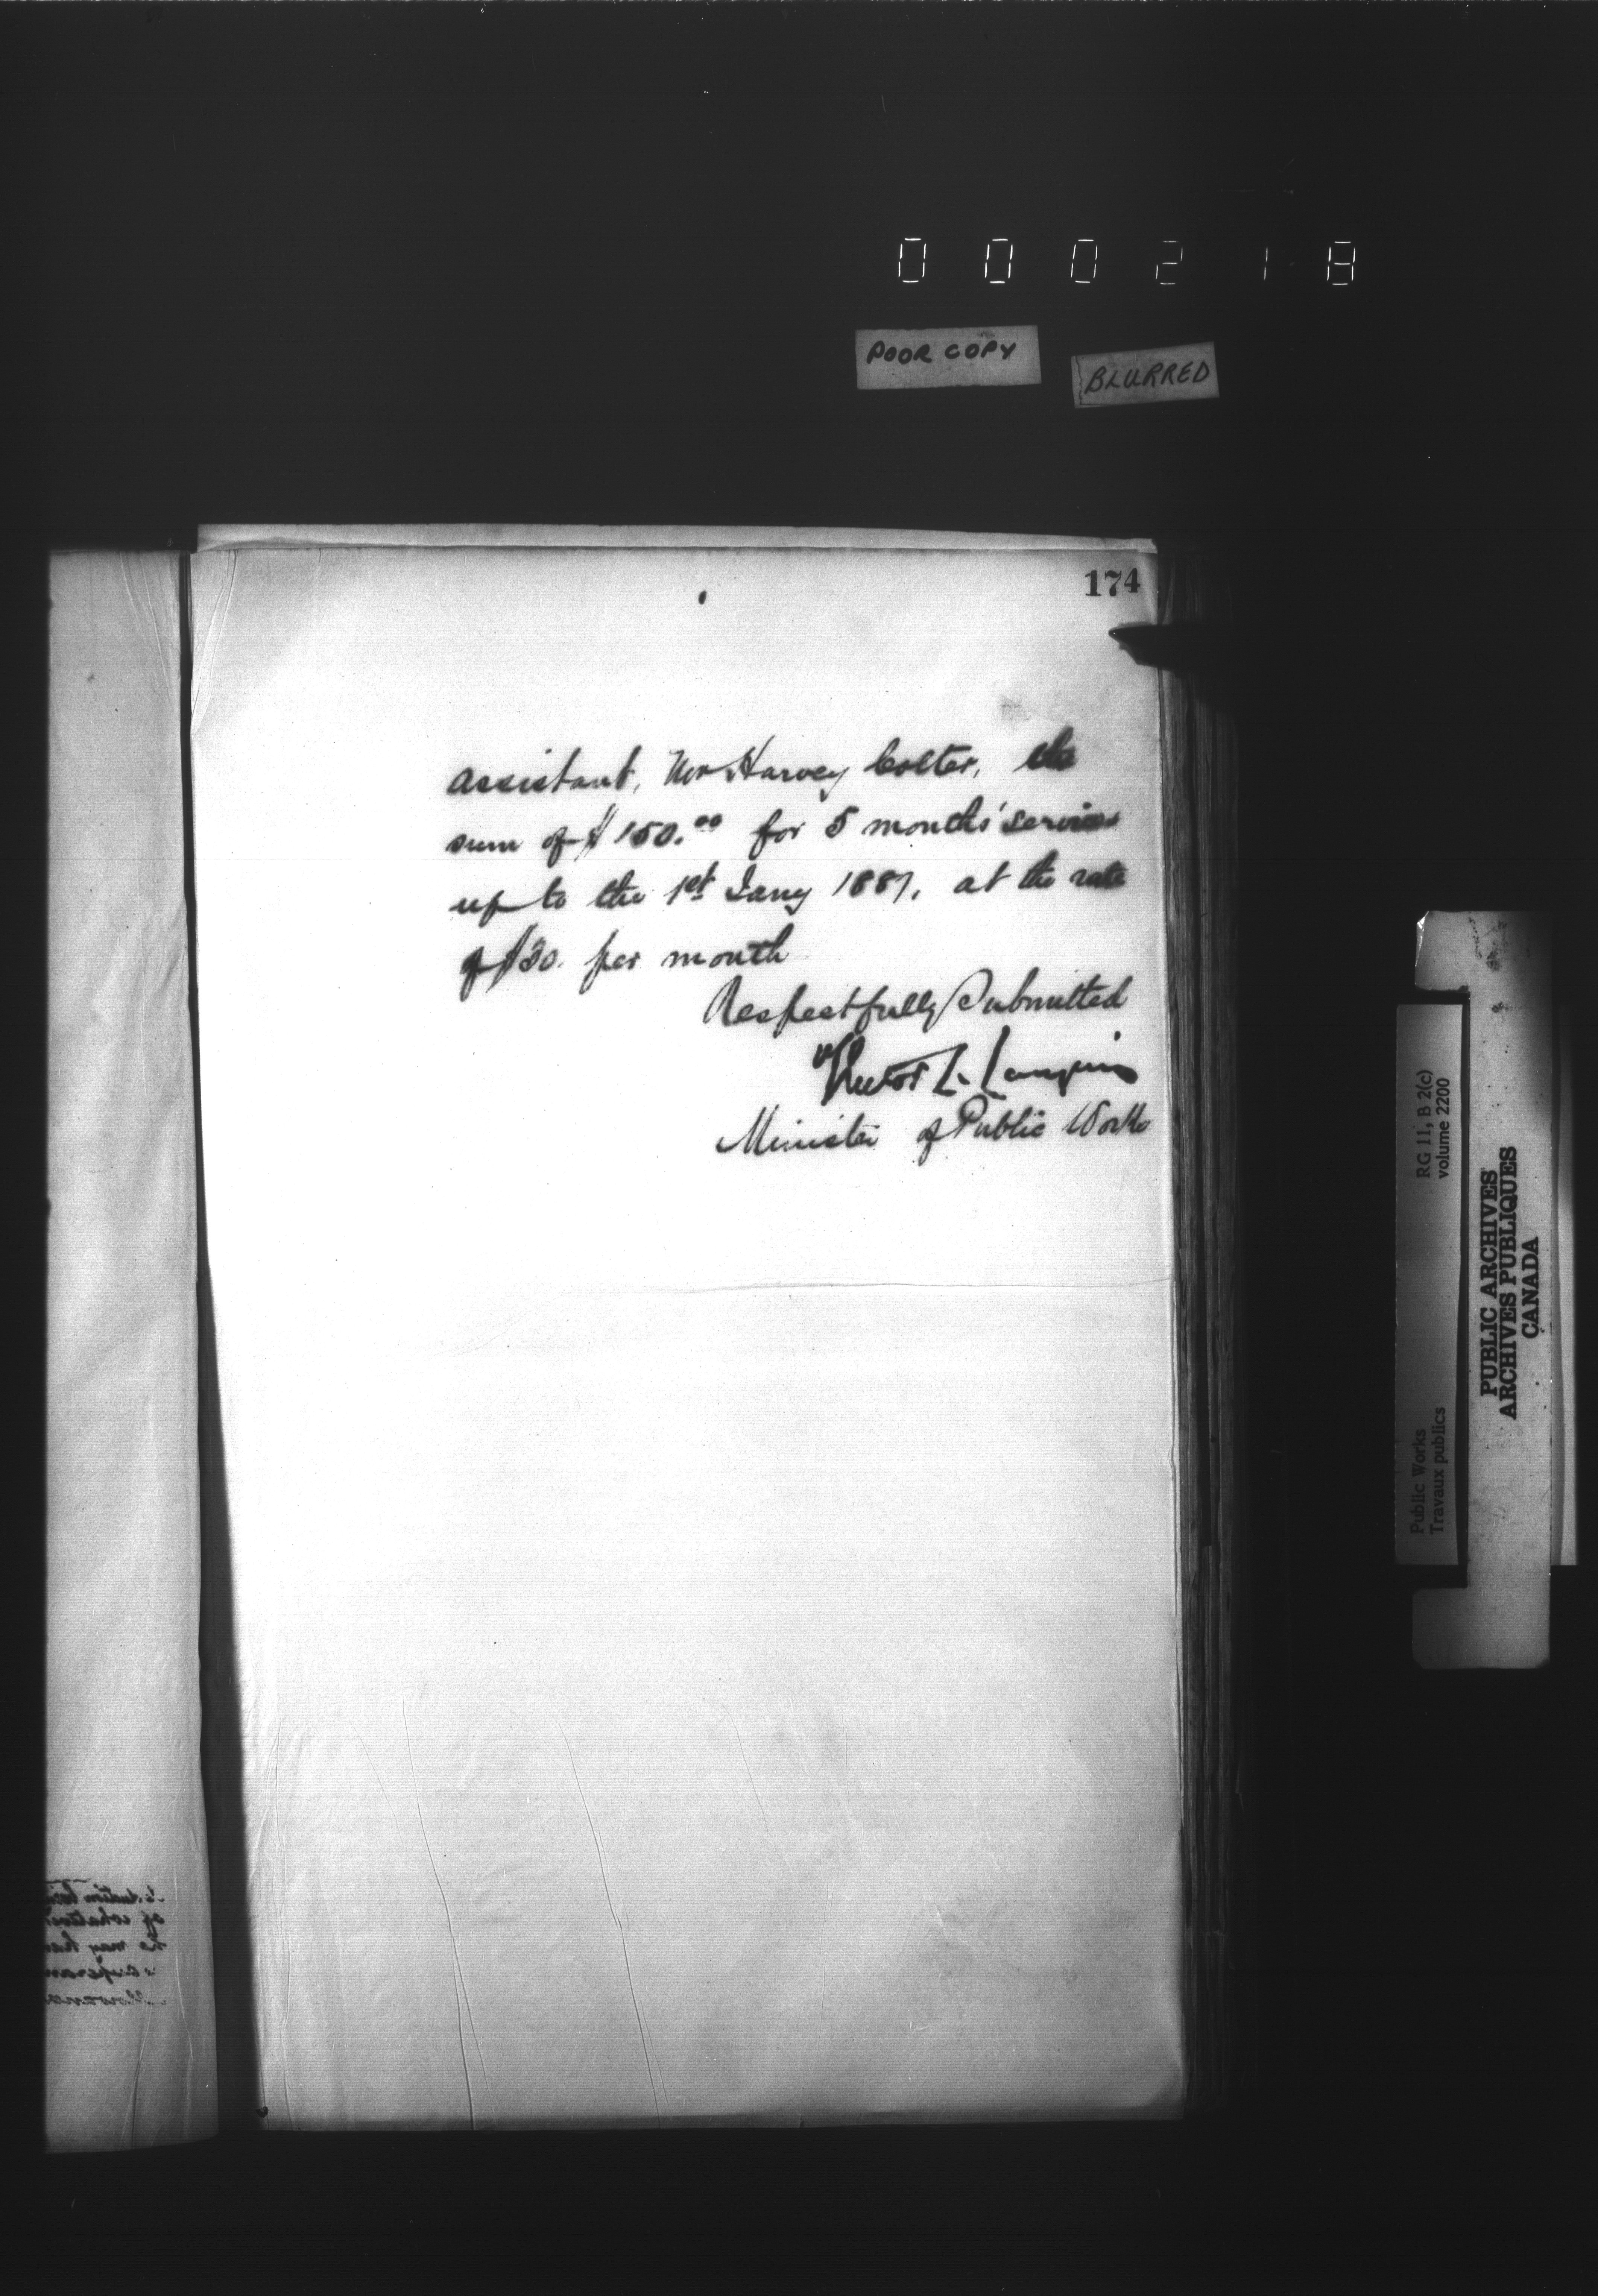 000218
POOR COPY
BLURRED
174
assistant, Mr Harvey Colter, the
sum of $150.00 for 5 months' services
up to the 1st Jany 1887, at the rate
of $30. per month
Respectfully Submitted
Hector L. Langevin
Minister of Public Works
Public Works
Travaux publics
RG 11, B 2(c)
volume 2200
PUBLIC ARCHIVES
ARCHIVES PUBLIQUES
CANADA
of
he may